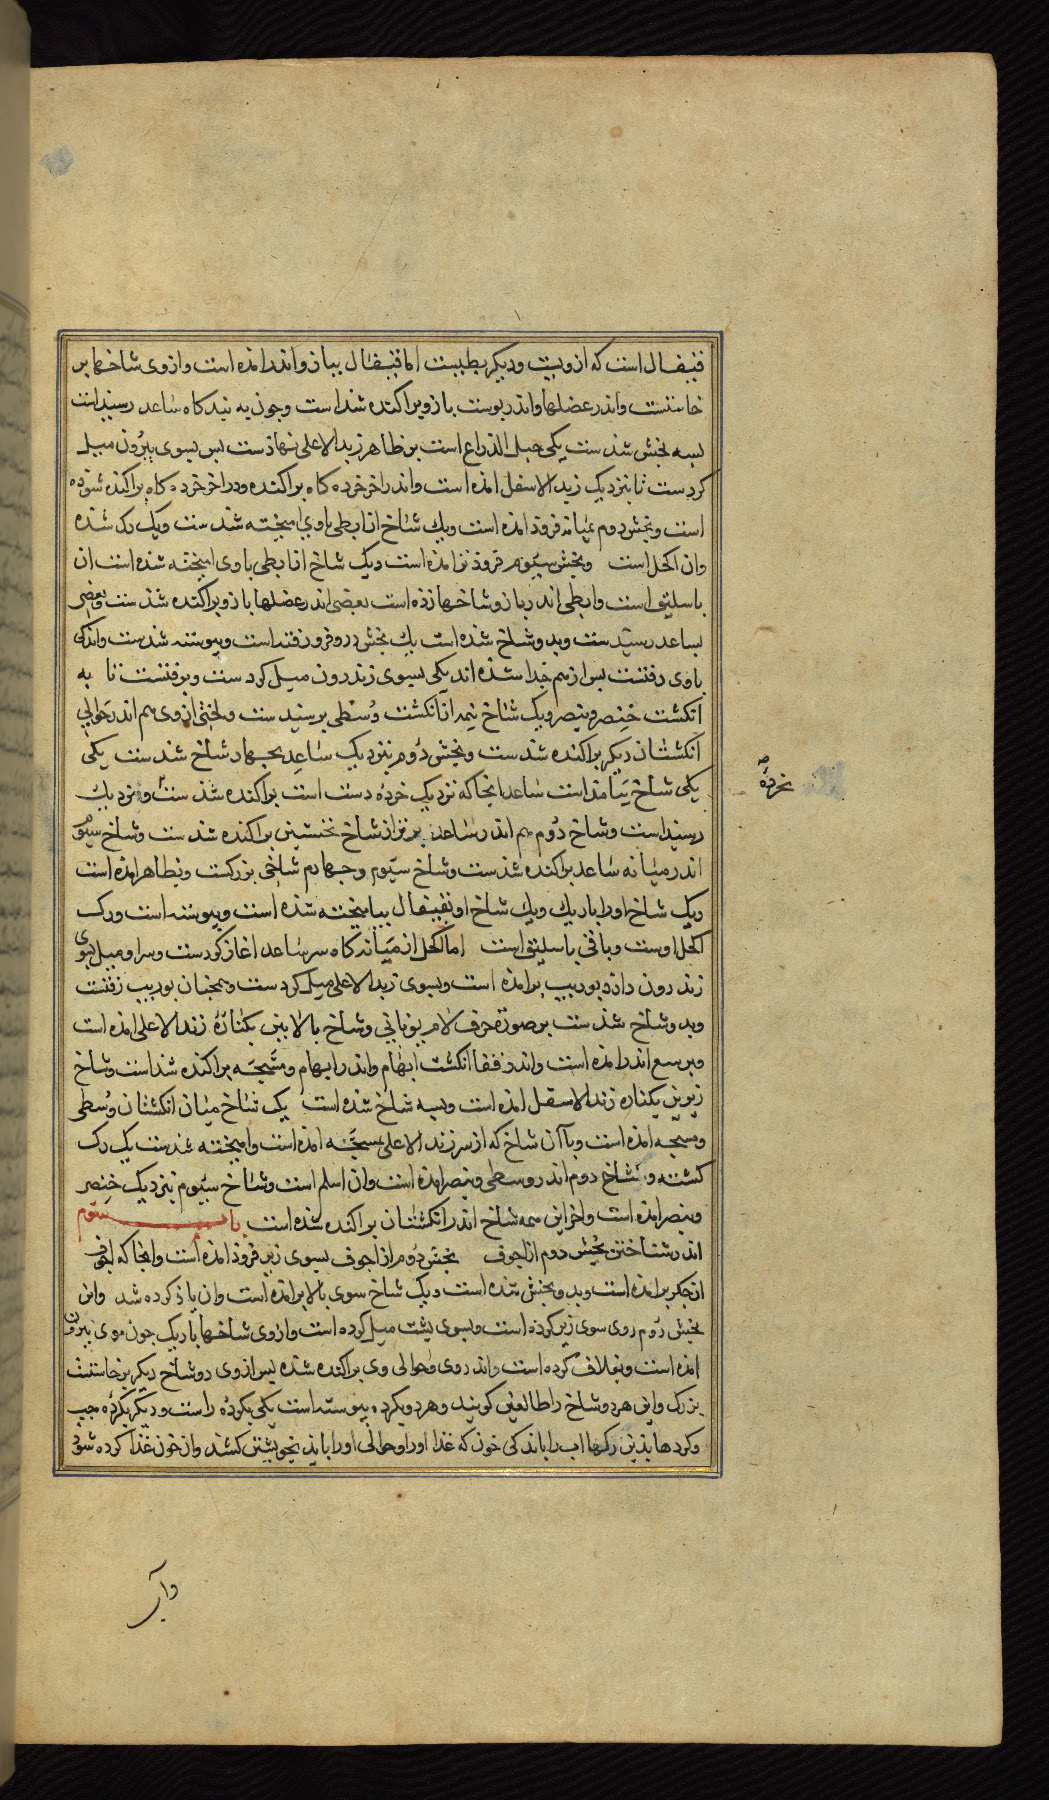 قیفال است که از ویست و دیکر بطییت اما قیفال ببازو اندر امذه است و از وی شاخها بر
خاستست و اندر عضلها و اندر پوست بازو پراکنده شداست و جون به بندکاه ساعد رسیداست
بسه بخش شذست یکی حبل الذراع است بر ظاهر زند الاعلی نهاذست بس بسوی بیرون میل
کردست تا بنزدیک زند الاسفل امذه است و اندر اخر خرده کاه براکنده و در اخر خرده کاه براکنده شوذه
است و بخش دوم بمیانه فروذ امذه است و یک شاخ از ابطی با وی امیخته شدست و یک رک شذه
و ان اکحل است و بخش سیوم فروذتر امذه است و یک شاخ از ابطی با وی امیخته شذه است ان
باسلیق است و ابطی اندر بازو شاخها زذه است بعضی اندر عضلها بازو براکنده شذست و بعضی
بساعد رسیدست و بدو شاخ شذه است یک بخش درو فرو رفته است و بیوسته شدست و اندکی
با وی رفتست بس از هم جدا شذه اند یکی بسوی زند زون میل کردست و برفتست تا به
انکشت خنصر و بنصر و یک شاخ نیمه از انکشت وسطی برسیدست و لختی از وی هم اندر حوالی
انکشتان دیکر براکنده شدست و بخش دوم بنزدیک ساعد بجهار شاخ شدست یکی
یکی شاخ بیامذاست ساعد انجا که نزدیک خرده دست است براکنده شذست و نزدیک
رسیداست و شاخ دوم هم اندر ساعد برتر از شاخ نخستین براکنده شدست و شاخ سیوم
اندر میانه ساعد براکنده شذست و شاخ سیوم و جهارم شاخی بزرکست و بظاهر امذه است
و یک شاخ اورا باریک و یک شاخ او بقیفال بیامیخته شذه است و بیوسته است و رک
اکحل اوست و باقی باسلیق است اما اکحل از میانه کاه سر ساعد اغاز کردست و سر او میل بسوی
زند زون دارد بوریب برامذه است و بسوی زند الاعلی میل کردست و همجنان بوریب رفتست
و بدو شاخ شذست بر صورة حرف لام یونانی و شاخ بالایین بکناره زند الاعلی امذه است
و برسغ اندر امذه است و اندر قفا انکشت ابهام و اندر ابهام و مسبحه براکنده شذاست و شاخ
زیرین بکناره زند الاسفل امذه است و بسه شاخ شذه است یک شاخ میان انکشتان وسطی
و مسبحه امذه است و با آن شاخ که از سر زند الاعلی بمسبحه امذه است وامیخته شدست یک رک
کشته و شاخ دوم اندر وسطی و بنصر امذه است و ان اسلم است و شاخ سیوم بنزدیک خنصر
و بنصر امذه است و اخر این سه شاخ اندر انکشتان براکنده شذه است باب سیوم
اندر شناختن بخش دوم از اجوف بخش دوم از اجوف بسوی زیر فروذ امذه است و انجا که اجوف
از جکر برامذه است و بدو بخش شذه است و یک شاخ سوی بالا برامذه است و ان یاذ کرده شد و این
بخش دوم روی سوی زیر کرده است و بسوی پشت میل کرده است و از وی شاخها باریک جون موی بیرون
امذه است و بغلاف کرده است و اند روی و حوالی وی براکنده شذه بس از وی دو شاخ دیکر برخاستست
بزرک و این هر دو شاخ را طالعین کویند و هر دو بکرده بیوسته است یکی بکرده راست و دیکر بکرده جب
و کردها بذین رکها اب را با اندکی خون که غذا او را و حوالی او را بایذ بخویشتن کشد و از خون غذا کرده شوذ
خردهٔ
صح
وآب